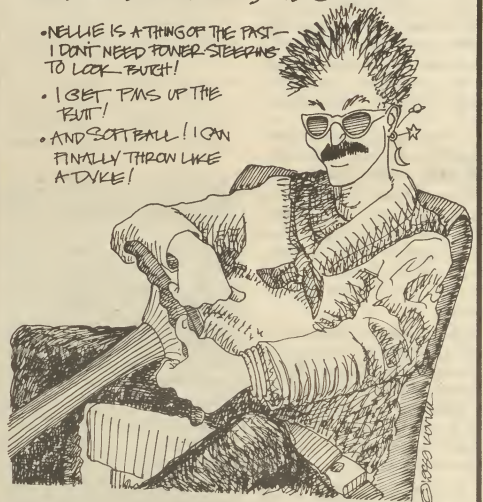 • NELLIE IS A THING OF THE PAST—
I DON'T NEED POWER STEERING
TO LOOK BUTCH!
• I GET PMS UP THE
BUTT!
• AND SOFTBALL! I CAN
FINALLY THROW LIKE
A DYKE!